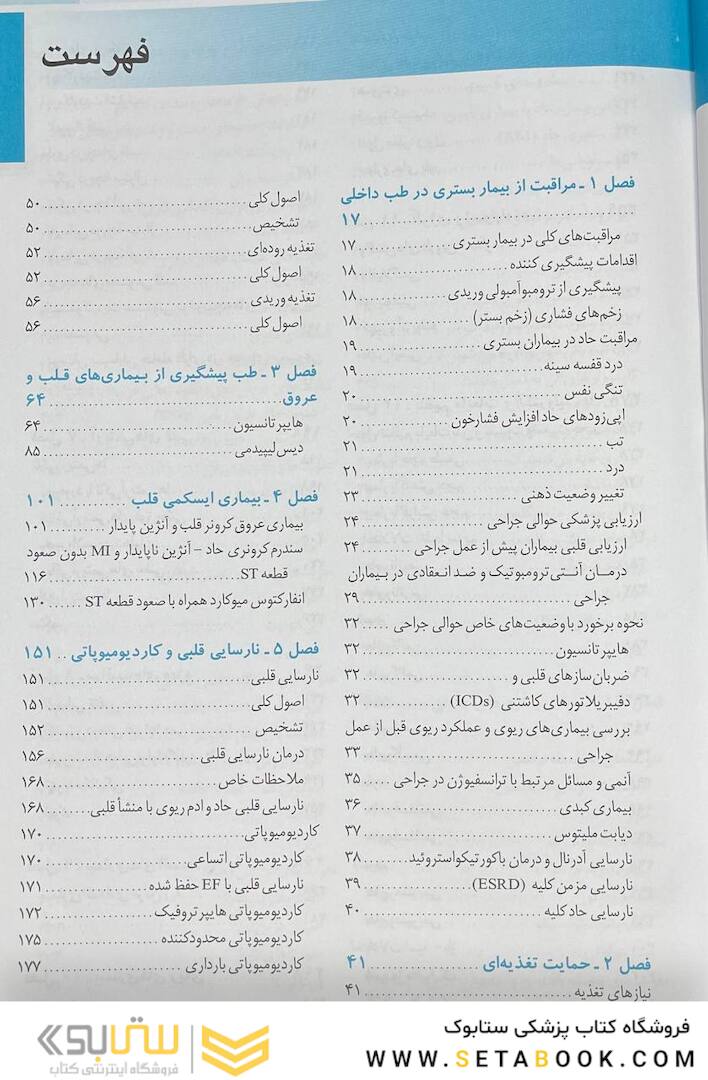 فهرست
فصل ۱ ـ مراقبت از بیمار بستری در طب داخلی
................................ ۱۷
مراقبت‌های کلی در بیمار بستری ............ ۱۷
اقدامات پیشگیری کننده .................. ۱۸
پیشگیری از ترومبوآمبولی وریدی ............ ۱۸
زخم‌های فشاری (زخم بستر) ............ ۱۸
مراقبت حاد در بیماران بستری ............ ۱۹
درد قفسه سینه .................. ۱۹
تنگی نفس .................. ۲۰
اپی‌زودهای حاد افزایش فشارخون ............ ۲۰
تب .................. ۲۱
درد .................. ۲۱
تغییر وضعیت ذهنی .................. ۲۳
ارزیابی پزشکی حوالی جراحی ............ ۲۴
ارزیابی قلبی بیماران پیش از عمل جراحی ......... ۲۴
درمـان آنـتی‌ترومبوتیک و ضـد انـعقادی در بـیماران
جراحی .................. ۲۹
نحوه برخورد با وضعیت‌های خاص حوالی جراحی ..... ۳۲
هایپرتانسیون .................. ۳۲
ضربان‌سازهای قلبی و .................. ۳۲
دفیبریلاتورهای کاشتنی (ICDs) ............ ۳۲
بررسی بیماری‌های ریوی و عملکرد ریوی قبل از عمل
جراحی .................. ۳۳
آنمی و مسائل مرتبط با ترانسفیوژن در جراحی ..... ۳۵
بیماری کبدی .................. ۳۶
دیابت ملیتوس .................. ۳۷
نارسایی آدرنال و درمان باکورتیکواستروئید ........ ۳۸
نارسایی مزمن کلیه (ESRD) ............ ۳۹
نارسایی حاد کلیه .................. ۴۰
فصل ۲ ـ حمایت تغذیه‌ای ............ ۴۱
نیازهای تغذیه .................. ۴۱
اصول کلی .................. ۵۰
تشخیص .................. ۵۰
تغذیه روده‌ای .................. ۵۲
اصول کلی .................. ۵۲
تغذیه وریدی .................. ۵۶
اصول کلی .................. ۵۶
فصل ۳ ـ طب پیشگیری از بـیماری‌های قـلب و
عروق .................. ۶۴
هایپرتانسیون .................. ۶۴
دیس‌لیپیدمی .................. ۸۵
فصل ۴ ـ بیماری ایسکمی قلب ............ ۱۰۱
بیماری عروق کرونر قلب و آنژین پایدار ........ ۱۰۱
سندرم کرونری حاد – آنژین ناپایدار و MI بدون صعود
قطعه ST .................. ۱۱۶
انفارکتوس میوکارد همراه با صعود قطعه ST ...... ۱۳۰
فصل ۵ ـ نارسایی قلبی و کاردیومیوپاتی .. ۱۵۱
نارسایی قلبی .................. ۱۵۱
اصول کلی .................. ۱۵۱
تشخیص .................. ۱۵۲
درمان نارسایی قلبی .................. ۱۵۶
ملاحظات خاص .................. ۱۶۸
نارسایی قلبی حاد و ادم ریوی با منشأ قلبی ....... ۱۶۸
کاردیومیوپاتی .................. ۱۷۰
کاردیومیوپاتی اتساعی .................. ۱۷۰
نارسایی قلبی با EF حفظ شده ............ ۱۷۱
کاردیومیوپاتی هایپرتروفیک ............ ۱۷۲
کاردیومیوپاتی محدودکننده ............ ۱۷۵
کاردیومیوپاتی بارداری ............ ۱۷۷
فروشگاه کتاب پزشکی ستابوک
WWW.SETABOOK.COM
ستابوک
فروشگاه اینترنتی کتاب